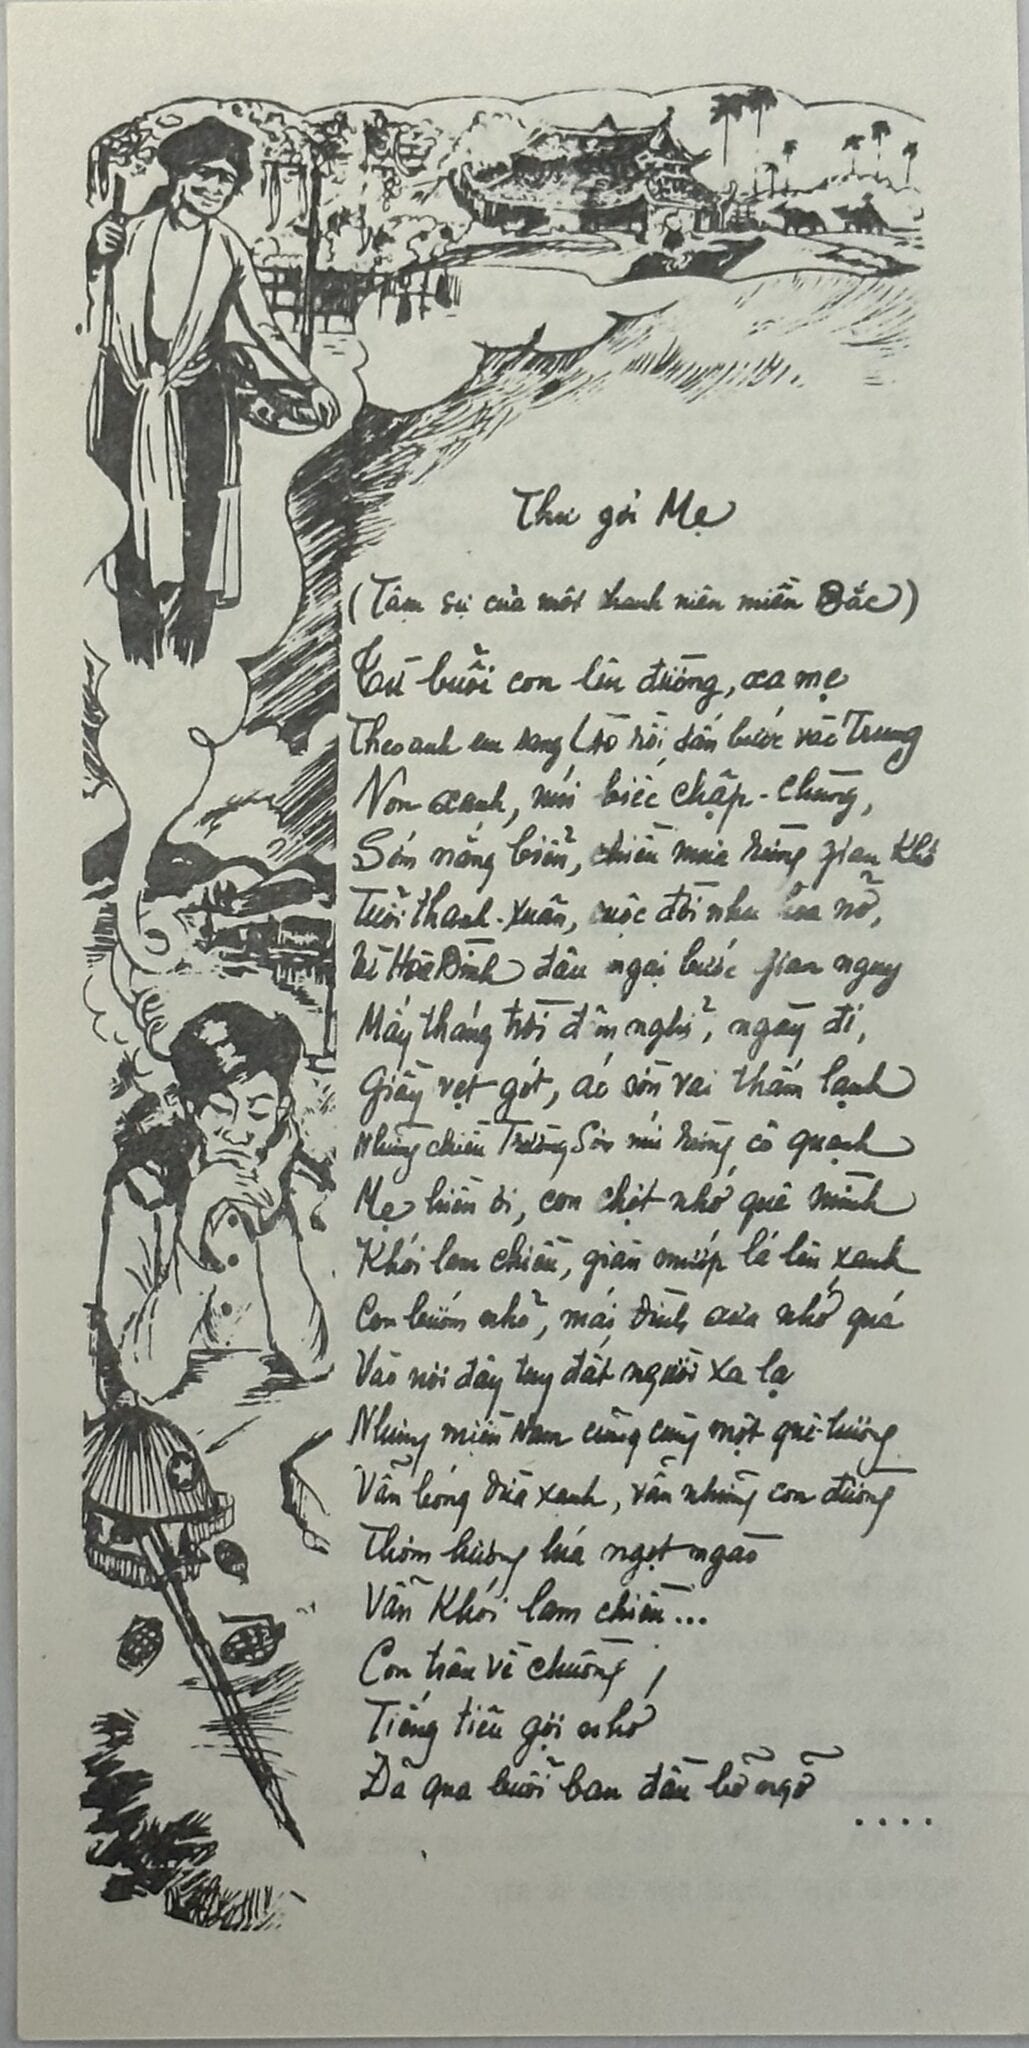 Thư gởi Mẹ
(Tâm sự của một thanh niên miền Bắc)
Từ buổi con lên đường, xa mẹ
Theo anh em sang Lào rồi dấn bước vào Trung
Non xanh, núi biếc chập-chùng,
Sớm nắng biển, chiều mưa rừng gian khổ
Tuổi thanh-xuân, cuộc đời như hoa nở,
Vì Hòa Bình đâu ngại bước gian nguy
Mấy tháng trời đêm nghỉ, ngày đi,
Giầy vẹt gót, áo sờn vai thấm lạnh
Những chiều Trường Sơn núi rừng cô quạnh
Mẹ hiền ơi, con chợt nhớ quê mình
Khói lam chiều, giàn mướp lá lên xanh
Con bướm nhỏ, mái đình xưa nhớ quá
Vào nơi đây tuy đất người xa lạ
Nhưng miền Nam cũng cùng một quê-hương
Vẫn bóng dừa xanh, vẫn những con đường
Thơm hương lúa ngọt ngào
Vẫn khói lam chiều...
Con trâu về chuồng,
Tiếng tiêu gợi nhớ
Đã qua buổi ban đầu bỡ ngỡ
....